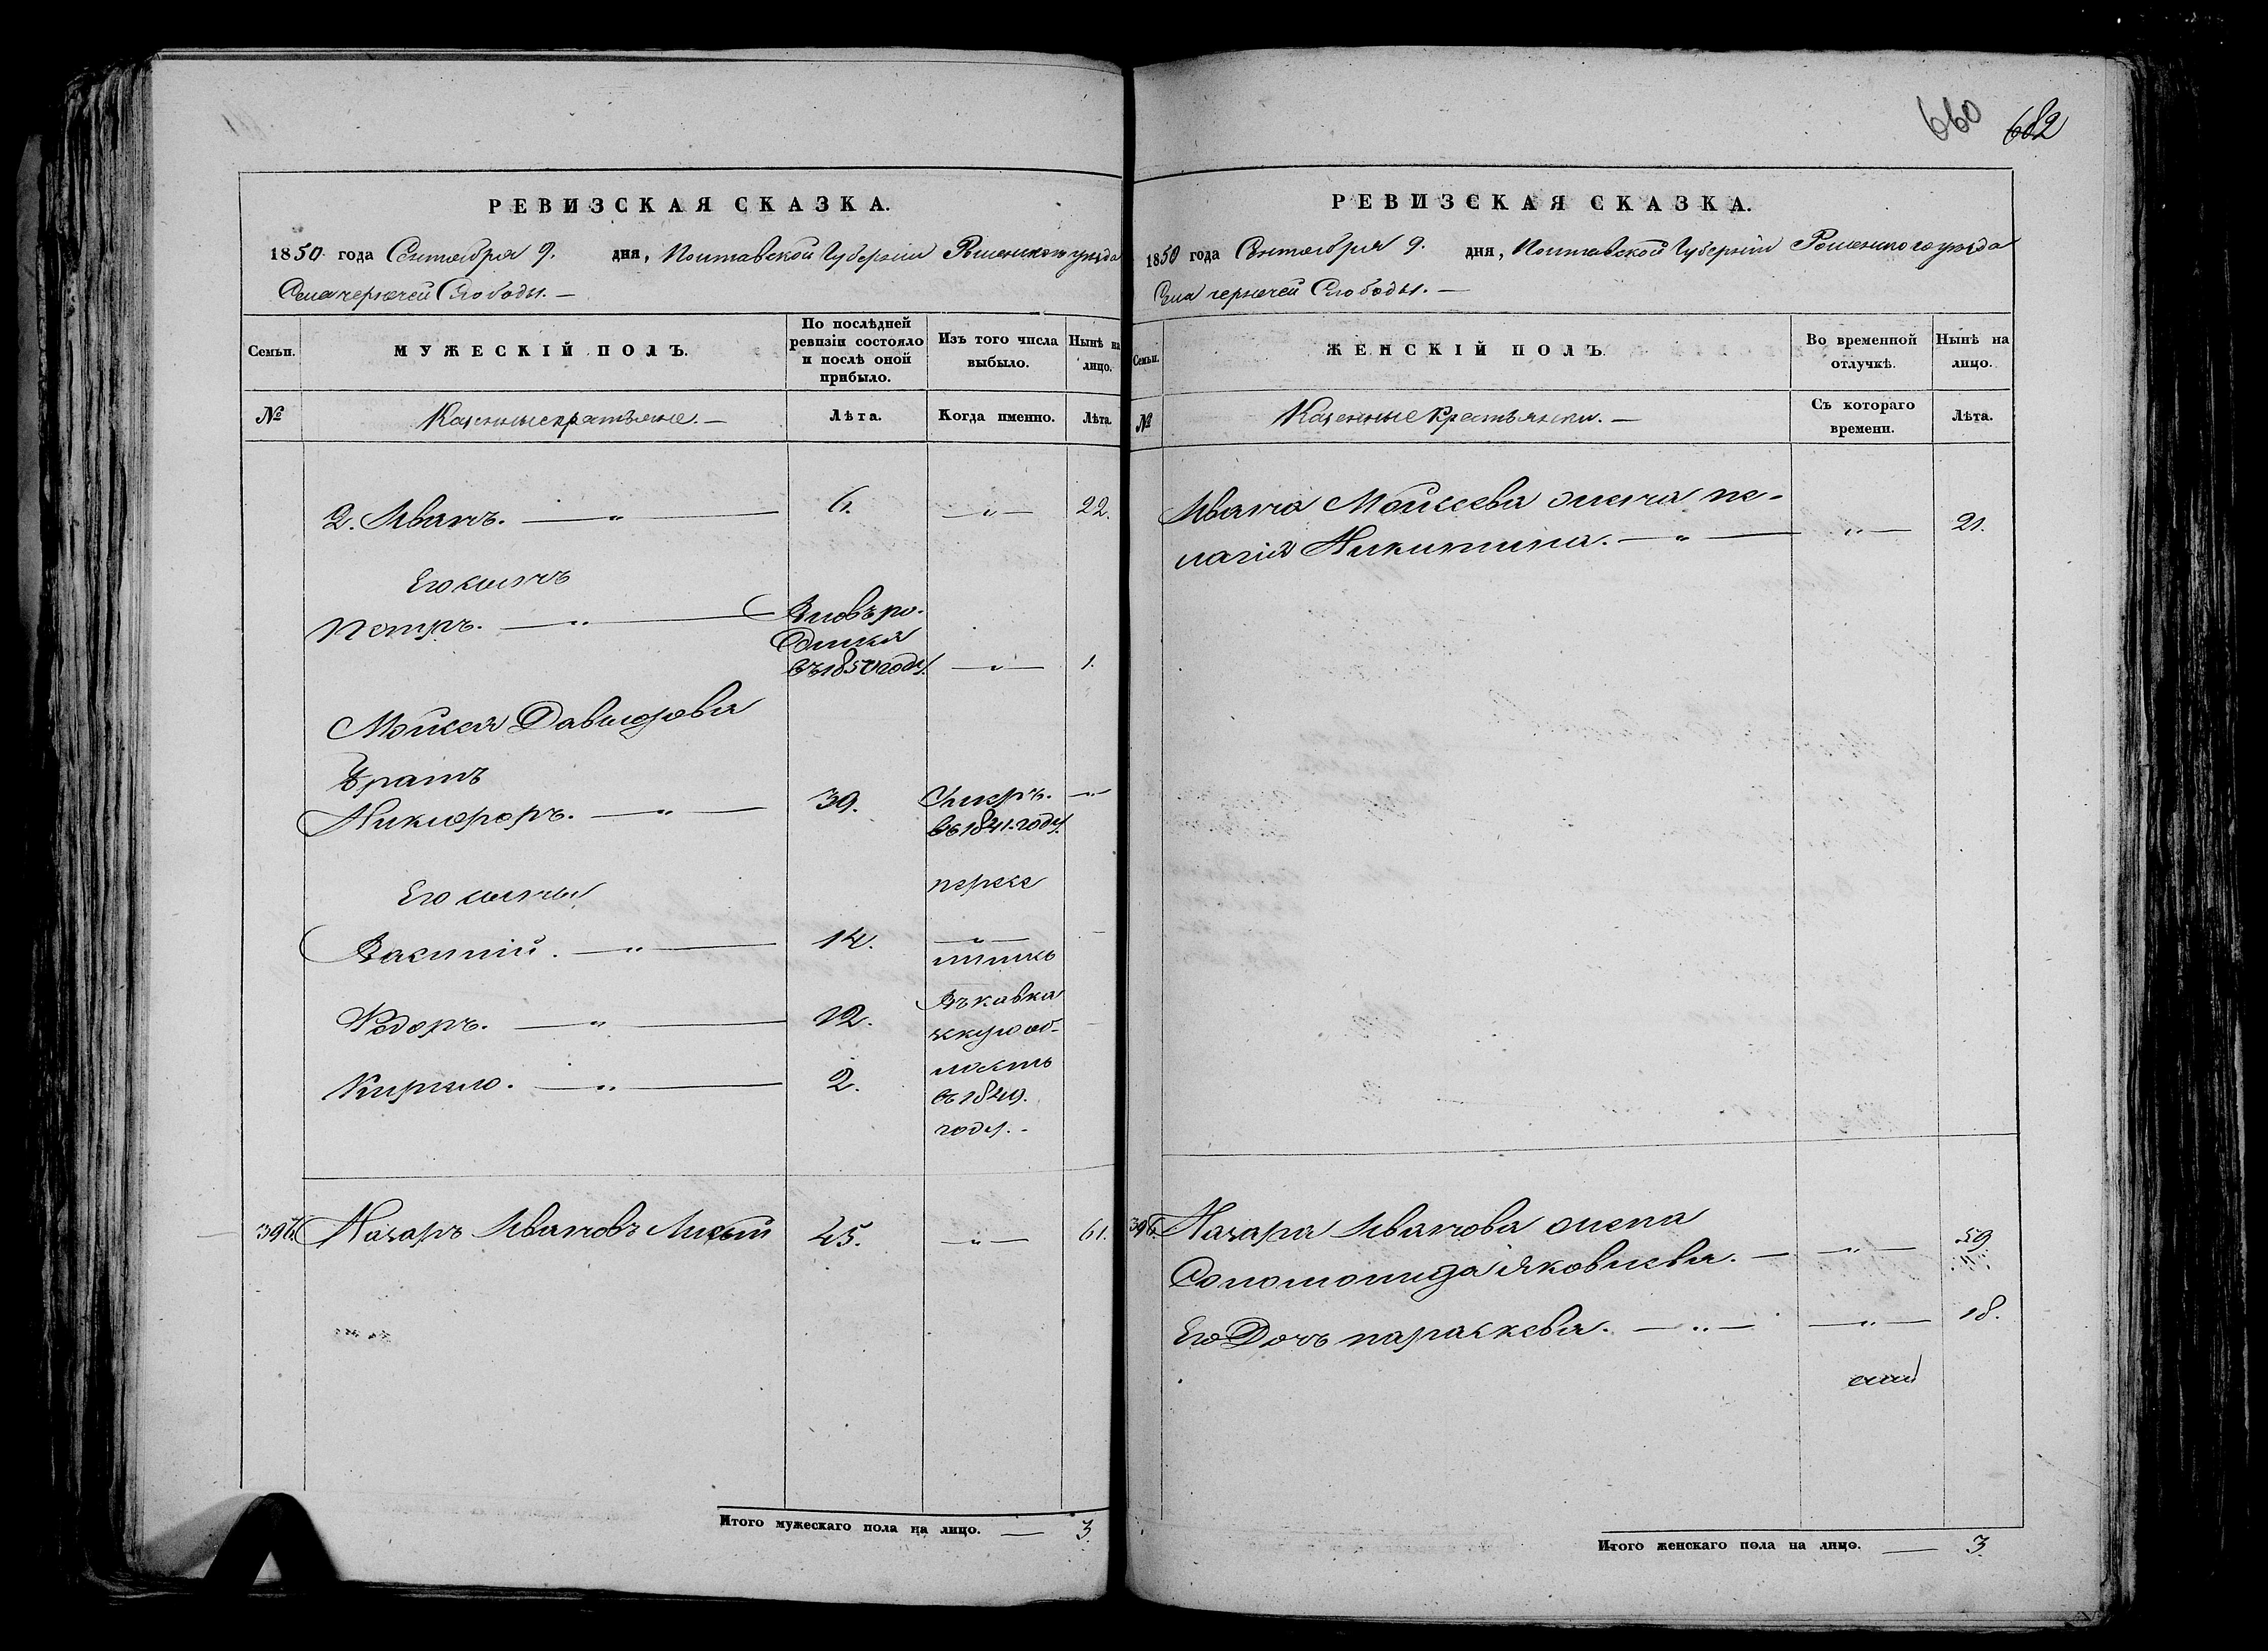 660 682
РЕВИЗСКАЯ СКАЗКА.
1850 года Сентября 9. дня, Полтавской Губерніи Роменскаго уезда
Села чернечей Слободы. —
Семьи.
МУЖЕСКІЙ ПОЛЪ.
По послѣдней ревизіи состояло и послѣ оной прибыло.
Изъ того числа выбыло.
Нынѣ на лицо.
№
Казенные крестьяне. —
Лѣта.
Когда именно.
Лѣта.
2. Иванъ. — „ — 6. — „ — 22.
Его сынъ
Петръ. — „ — Вновь ро-
дился
въ 1850 году. — „ — 1.
Мойсея Давидова
братъ
Никифоръ. — „ — 39. Умеръ. — „ —
въ 1841. году.
Его сыны пересе
Василій. — „ — 14. — „ —
лились
Федоръ. — „ — 12. Въ кавка
зкую об-
Кирило. — „ — 2. ласть
въ 1849.
году. -
396 Назаръ Ивановъ Лисый 45. — „ — 61.
Итого мужескаго пола на лицо. — 3.
РЕВИЗСКАЯ СКАЗКА.
1850 года Сентября 9. дня, Полтавской Губерніи Роменскаго уезда
Села чернечей Слободы. —
Семьи.
ЖЕНСКІЙ ПОЛЪ.
Во временной отлучкѣ.
Нынѣ на лицо.
№
Казенные Крестьянки. —
Съ котораго времени.
Лѣта.
Ивана Мойсеева жена пе-
лагія Никитина. — „ — — „ — 21.
396. Назара Иванова жена
Соломонида Яковлева. — — „ — 59
Его Дочь параскева. — „ — — „ — 18.
Итого женскаго пола на лицо. — 3.